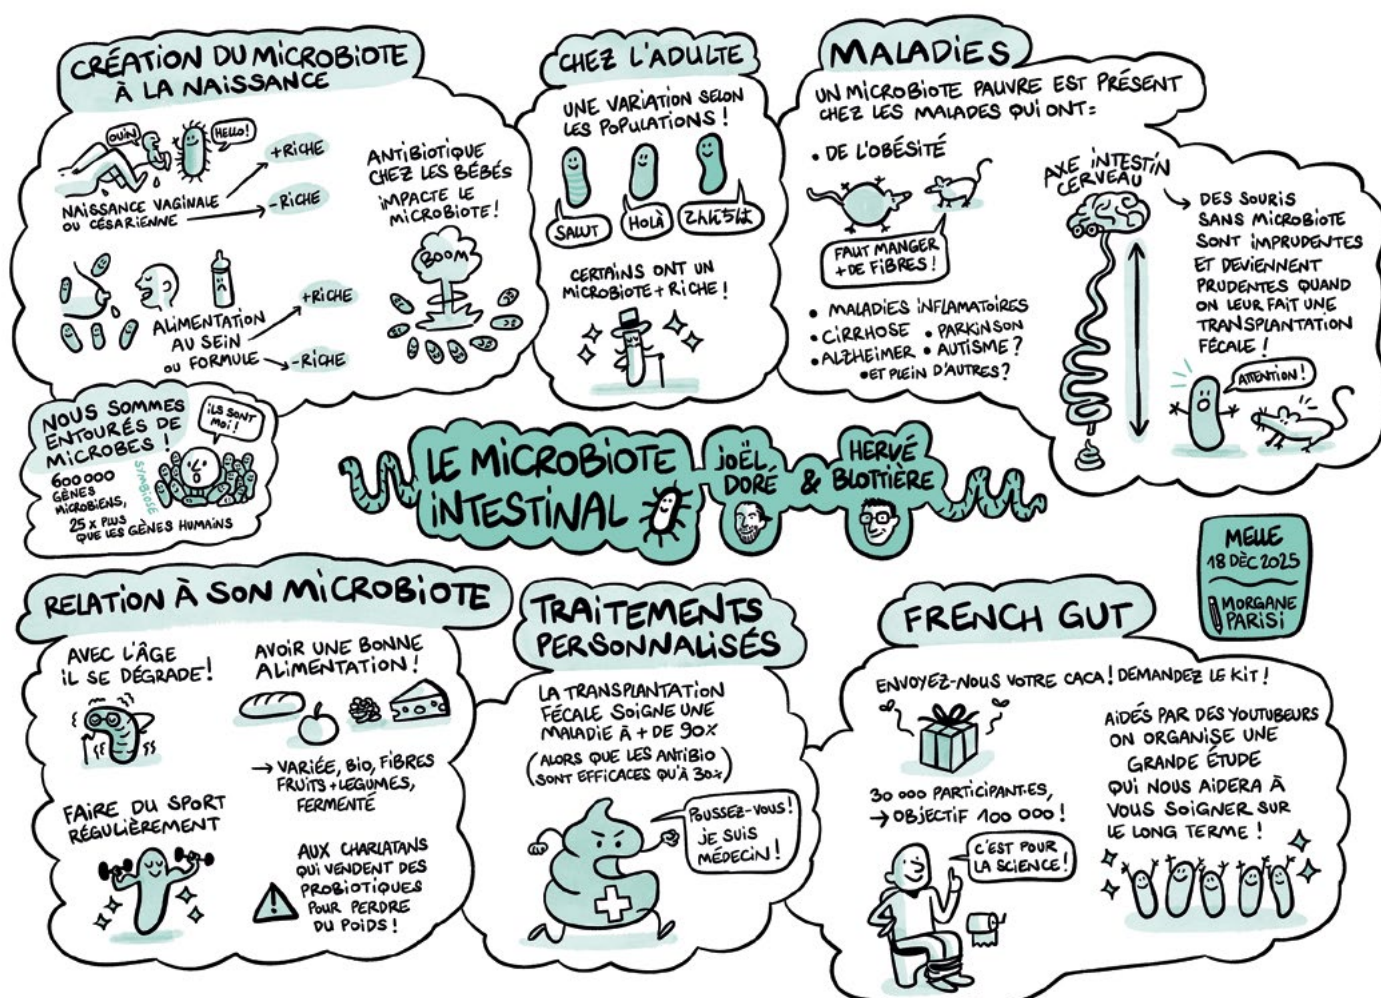 CRÉATION DU MICROBIOTE
À LA NAISSANCE
OUIN
HELLO!
NAISSANCE VAGINALE
OU CÉSARIENNE
+RICHE
-RICHE
ALIMENTATION
AU SEIN
OU FORMULE
+RICHE
-RICHE
ANTIBIOTIQUE
CHEZ LES BÉBÉS
IMPACTE LE
MICROBIOTE!
BOOM
CHEZ L'ADULTE
UNE VARIATION SELON
LES POPULATIONS!
SALUT
HOLÀ
CERTAINS ONT UN
MICROBIOTE + RICHE!
MALADIES
UN MICROBIOTE PAUVRE EST PRÉSENT
CHEZ LES MALADES QUI ONT:
• DE L'OBÉSITÉ
FAUT MANGER
+ DE FIBRES!
• MALADIES INFLAMATOIRES
• CIRRHOSE • PARKINSON
• ALZHEIMER • AUTISME?
• ET PLEIN D'AUTRES?
AXE INTESTIN
CERVEAU
→ DES SOURIS
SANS MICROBIOTE
SONT IMPRUDENTES
ET DEVIENNENT
PRUDENTES QUAND
ON LEUR FAIT UNE
TRANSPLANTATION
FÉCALE!
ATTENTION!
NOUS SOMMES
ENTOURÉS DE
MICROBES!
ILS SONT
MOI!
600 000
GÈNES
MICROBIENS,
25 x PLUS
QUE LES GÈNES HUMAINS
SYMBIOSE
LE MICROBIOTE
INTESTINAL
JOËL
DORÉ
&
HERVÉ
BLOTTIÈRE
MELLE
18 DÈC 2025
MORGANE
PARISI
RELATION À SON MICROBIOTE
AVEC L'ÂGE
IL SE DÉGRADE!
FAIRE DU SPORT
RÉGULIÈREMENT
AVOIR UNE BONNE
ALIMENTATION!
→ VARIÉE, BIO, FIBRES
FRUITS + LÉGUMES,
FERMENTÉ
AUX CHARLATANS
QUI VENDENT DES
PROBIOTIQUES
POUR PERDRE
DU POIDS!
TRAITEMENTS
PERSONNALISÉS
LA TRANSPLANTATION
FÉCALE SOIGNE UNE
MALADIE À + DE 90%
(ALORS QUE LES ANTIBIO
SONT EFFICACES QU'À 30%)
POUSSEZ-VOUS!
JE SUIS
MÉDECIN!
FRENCH GUT
ENVOYEZ-NOUS VOTRE CACA! DEMANDEZ LE KIT!
30 000 PARTICIPANT·ES,
→ OBJECTIF 100 000!
C'EST POUR
LA SCIENCE!
AIDÉS PAR DES YOUTUBEURS
ON ORGANISE UNE
GRANDE ÉTUDE
QUI NOUS AIDERA À
VOUS SOIGNER SUR
LE LONG TERME!